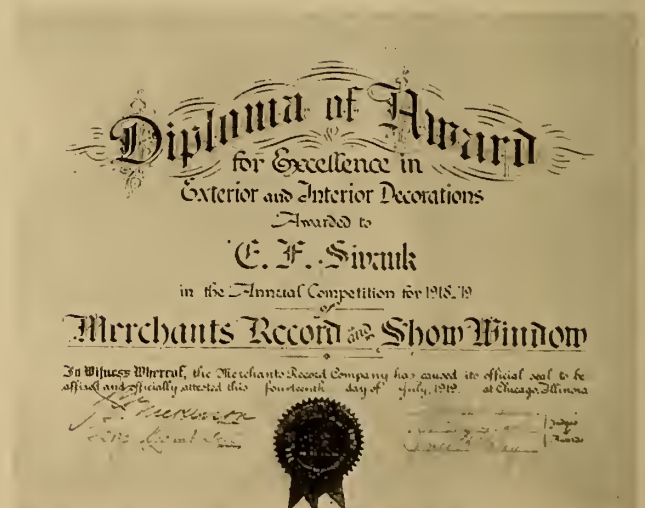 Diploma of Award
for Excellence in
Exterior and Interior Decorations
Awarded to
E. F. Sivauk
in the Annual Competition for 1918-'19
of
Merchants Record and Show Window
In Witness Whereof, the Merchants Record Company has caused its official seal to be
affixed and officially attested this fourteenth day of July, 1919. at Chicago, Illinois
Judges